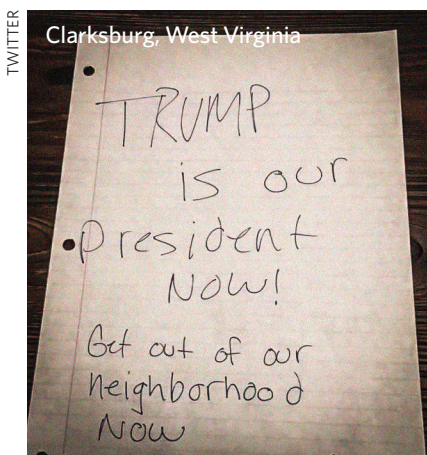 TWITTER
Clarksburg, West Virginia
TRUMP
is our
president
NOW!
Get out of our
neighborhood
NOW